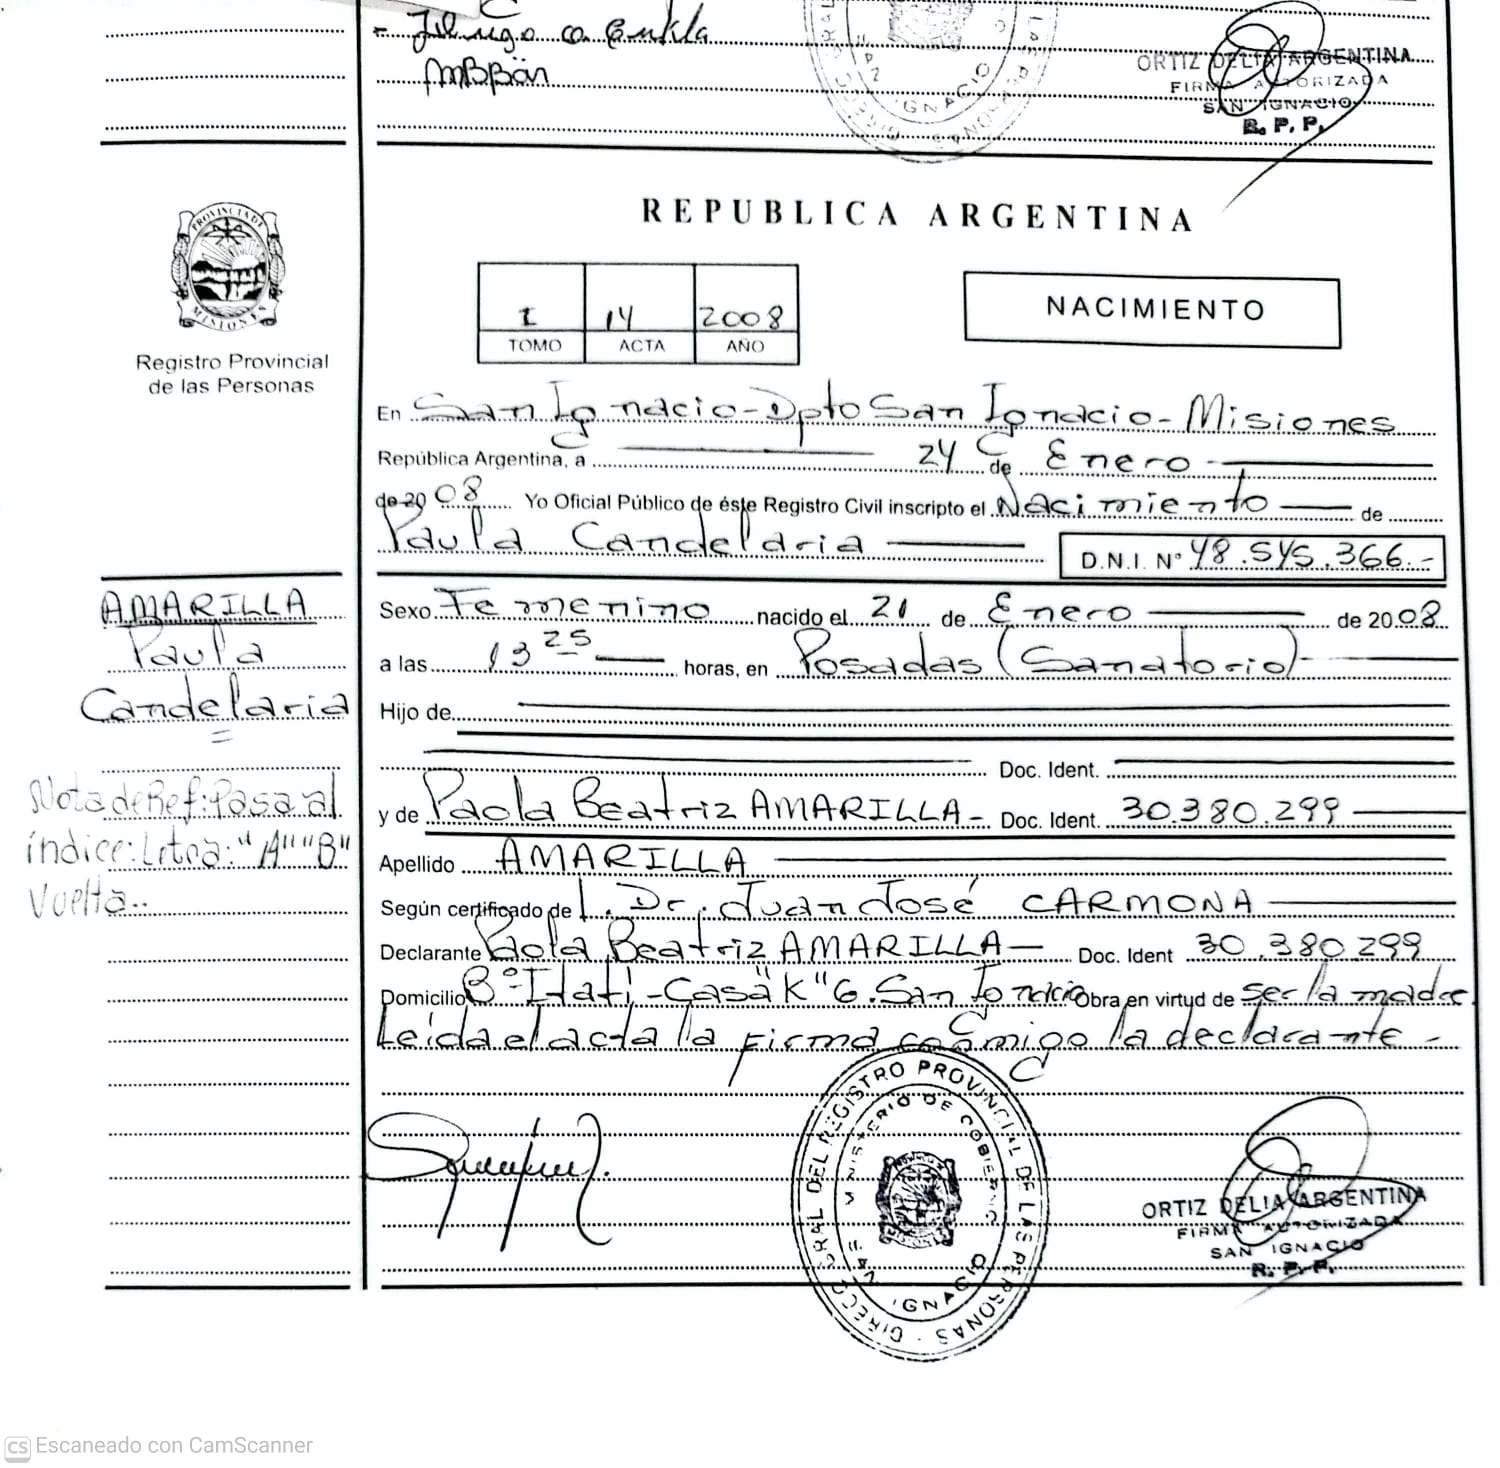 ORTIZ DELIA ARGENTINA
FIRMA AUTORIZADA
SAN IGNACIO
R. P. P.
REPUBLICA ARGENTINA
PROVINCIA DE
MISIONES
Registro Provincial
de las Personas
I 14 2008
TOMO ACTA AÑO
NACIMIENTO
En San Ignacio - Dpto San Ignacio - Misiones
República Argentina, a 24 de Enero
de 2008 Yo Oficial Público de éste Registro Civil inscripto el Nacimiento de
Paula Candelaria D.N.I. N° 48.545.366.-
AMARILLA
Paula
Candelaria
Sexo Femenino nacido el 21 de Enero de 2008
a las 13 25 horas, en Posadas (Sanatorio)
Hijo de
Doc. Ident.
y de Paola Beatriz AMARILLA - Doc. Ident. 30.380.299
Nota de Ref: Pasa al
índice: Letra: "A" "B"
Vuelta..
Apellido AMARILLA
Según certificado de Dr. Juan José CARMONA
Declarante Paola Beatriz AMARILLA - Doc. Ident 30.380.299
Domicilio B° Itatí - Casa "K" 6. San Ignacio Obra en virtud de ser la madre
Leída el acta la firma conmigo la declarante -
DIRECC. GRAL DEL REGISTRO PROVINCIAL DE LAS PERSONAS
MINISTERIO DE GOBIERNO
SAN IGNACIO
ORTIZ DELIA ARGENTINA
FIRMA AUTORIZADA
SAN IGNACIO
R. P. P.
CS Escaneado con CamScanner